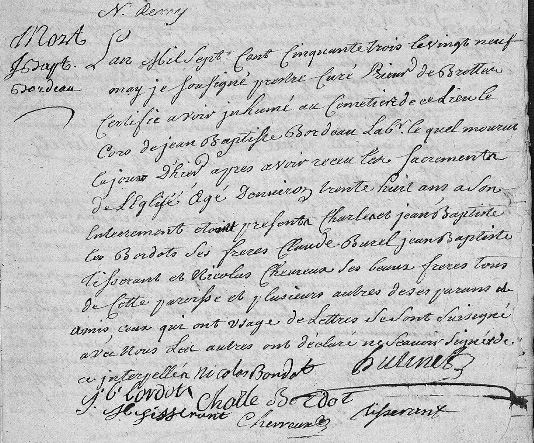 Mort
J Bapt.
Bordeau
L'an Mil Sept Cent Cinquante trois le vingt neuf
may je soussigné prestre Curé
Certifie avoir inhumé au Cimetiere de ce Lieu le
Cors de jean Baptiste Bordeau Labr. le quel mourut
le jour D'hier apres avoir receu les Sacrements
de L'Eglise Agé Denviron trente huit ans a Son
Enterrement etoint presents Charle et jean Baptiste
les Bordots Ses freres Claude Burel jean Baptiste
tisserant et Nicolas Cheveux Ses beaux freres tous
de Cette paroisse et plusieurs autres de ses parans et
amis ceux qui ont usage de Lettres Se sont Sussigné
avec Nous Les autres ont déclaré ne Scavoir Signé de
ce interpellé Nicolas Bordot
J B bordot Charle Bordot
tisserant tisserant